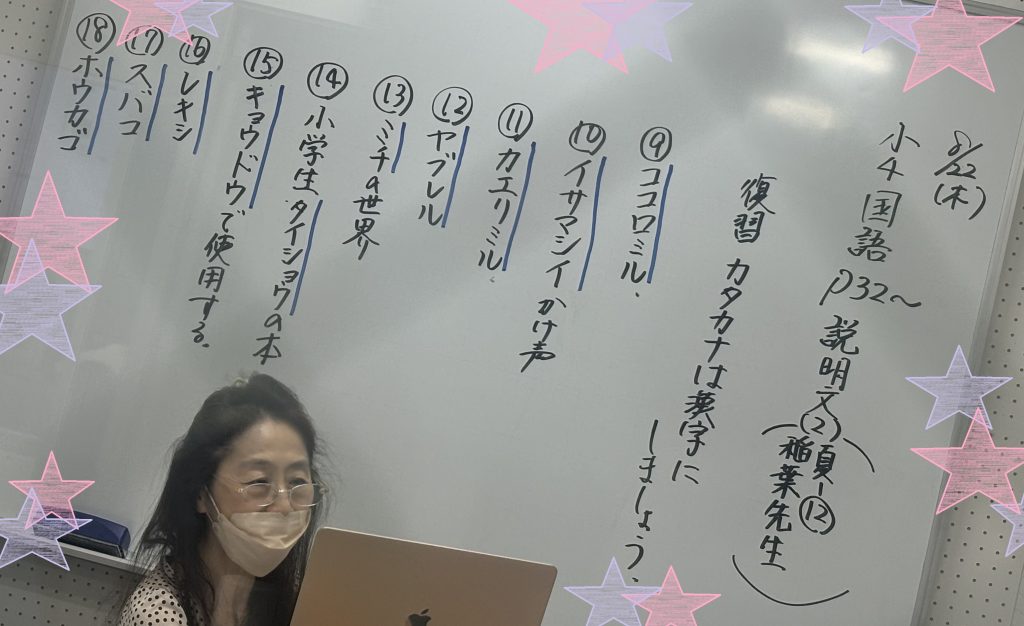 8/22(木)
小4 国語 P32〜 説明文(2)
頁-⑫
稲葉先生
復習 カタカナは漢字に
しましょう.
⑨ココロミル.
⑩イサマシイかけ声
⑪カエリミル.
⑫ヤブレル
⑬ミチの世界
⑭小学生タイショウの本
⑮キョウドウで使用する.
⑯レキシ
⑰スバコ
⑱ホウカゴ